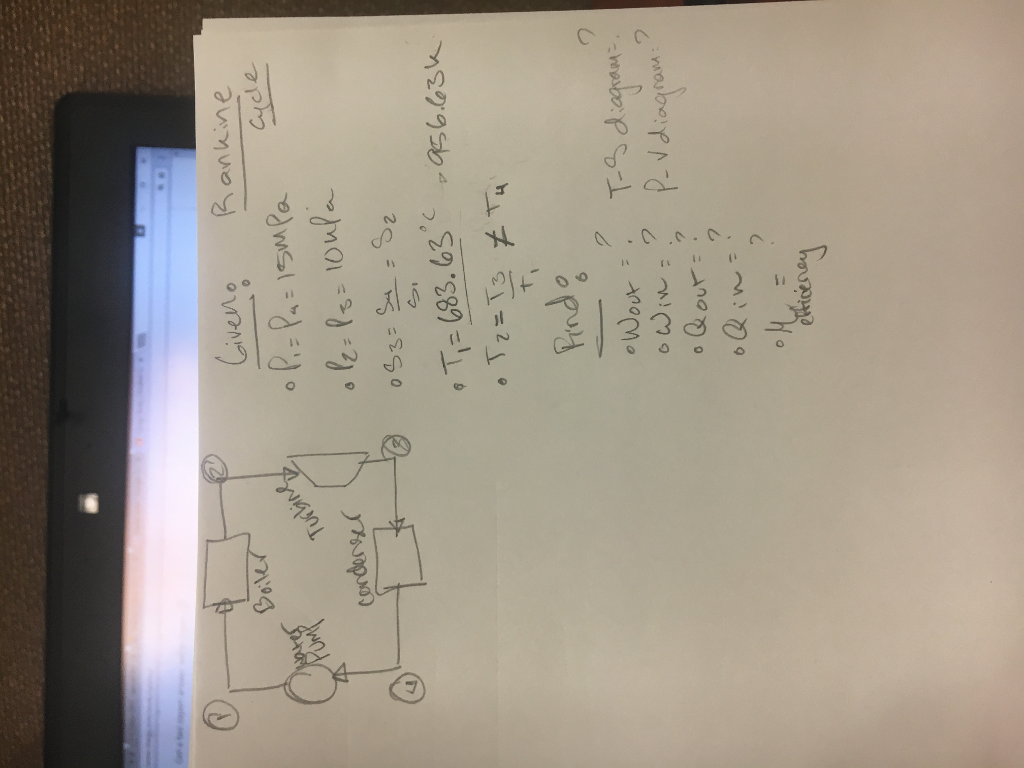 Rankine
cycle
Given:
• P1 = P4 = 15MPa
• P2 = P3 = 10kPa
• S3 = S4 = S2
S1
• T1 = 683.63°C
956.63K
• T2 = T3 ≠ T4
T1
Find:
• Wout = ?
• Win = ?
• Qout = ?
• Qin = ?
• η = ?
efficiency
T-S diagram = ?
P-V diagram = ?
1
Boiler
2
Turbine
3
condenser
4
Pump